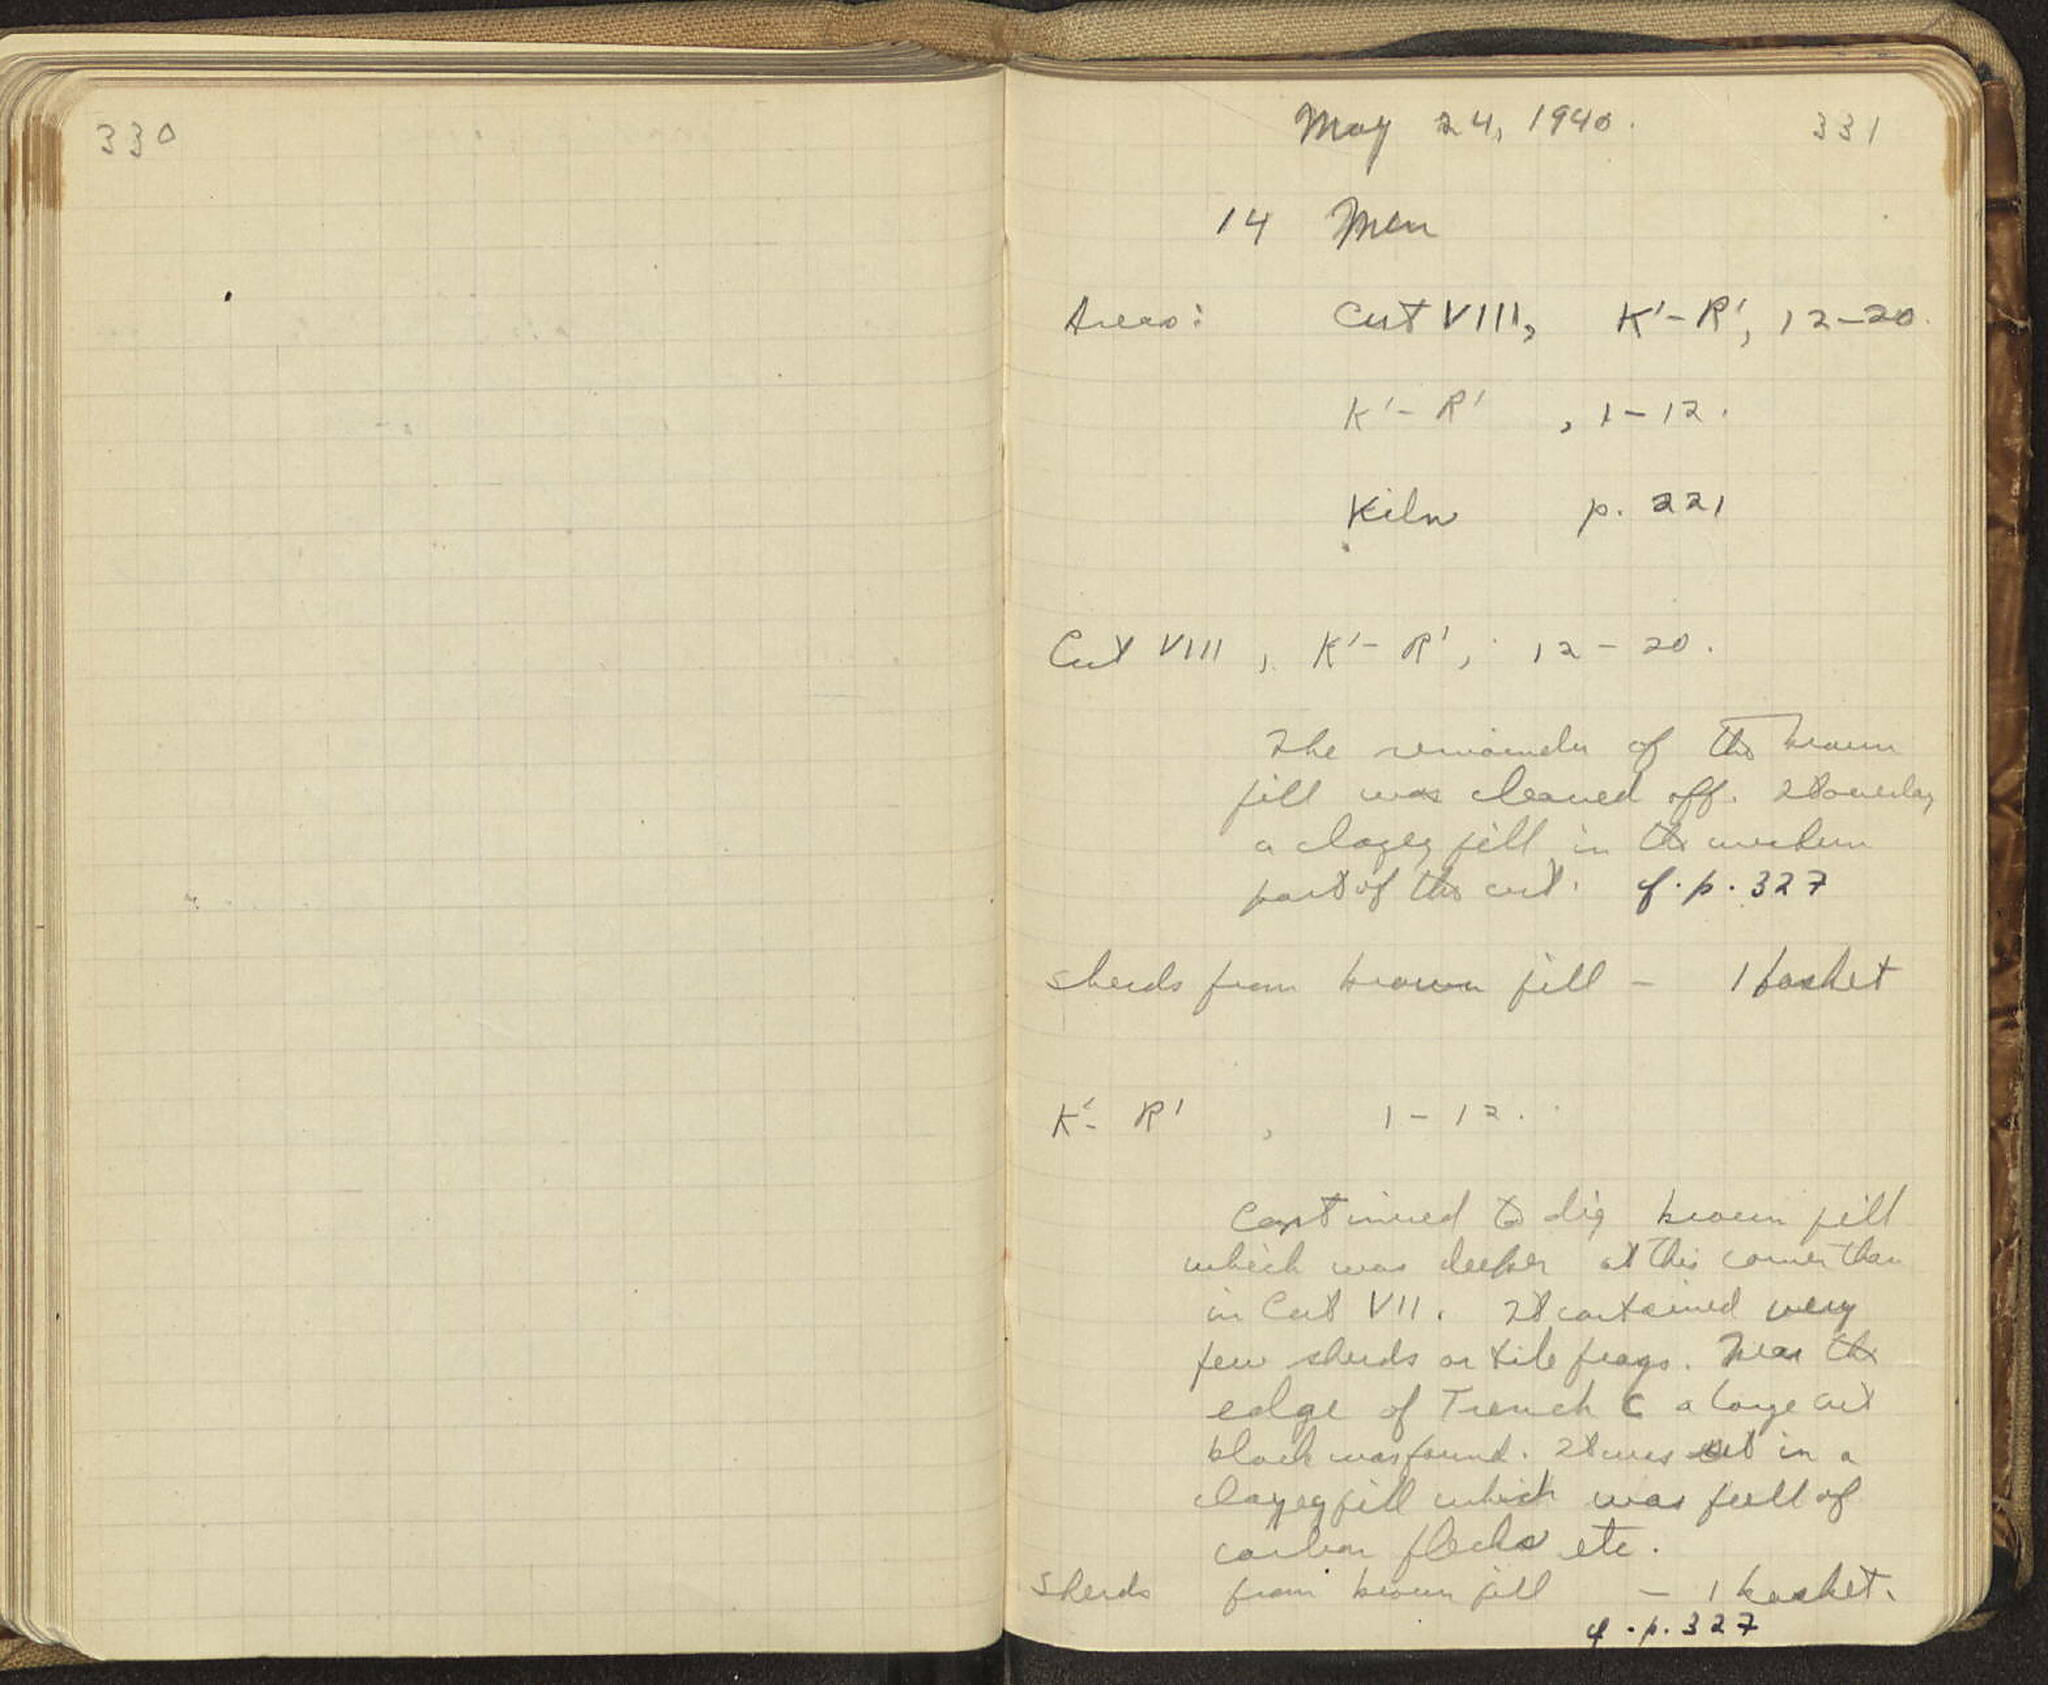 330
May 24, 1940.
331
14 Men
Areas: Cut VIII, K'-R', 12-20.
K'-R' , 1-12.
Kiln p. 221
Cut VIII, K'-R', 12-20.
The remainder of the brown
fill was cleaned off. It overlay
a clayey fill in the western
part of the cut. cf. p. 327
Sherds from brown fill - 1 basket
K'-R' , 1-12.
Continued to dig brown fill
which was deeper at this corner than
in Cut VII. It contained very
few sherds or tile frags. Near the
edge of Trench C a large cut
block was found. It was set in a
clayey fill which was full of
carbon flecks etc.
Sherds from brown fill - 1 basket.
cf. p. 327